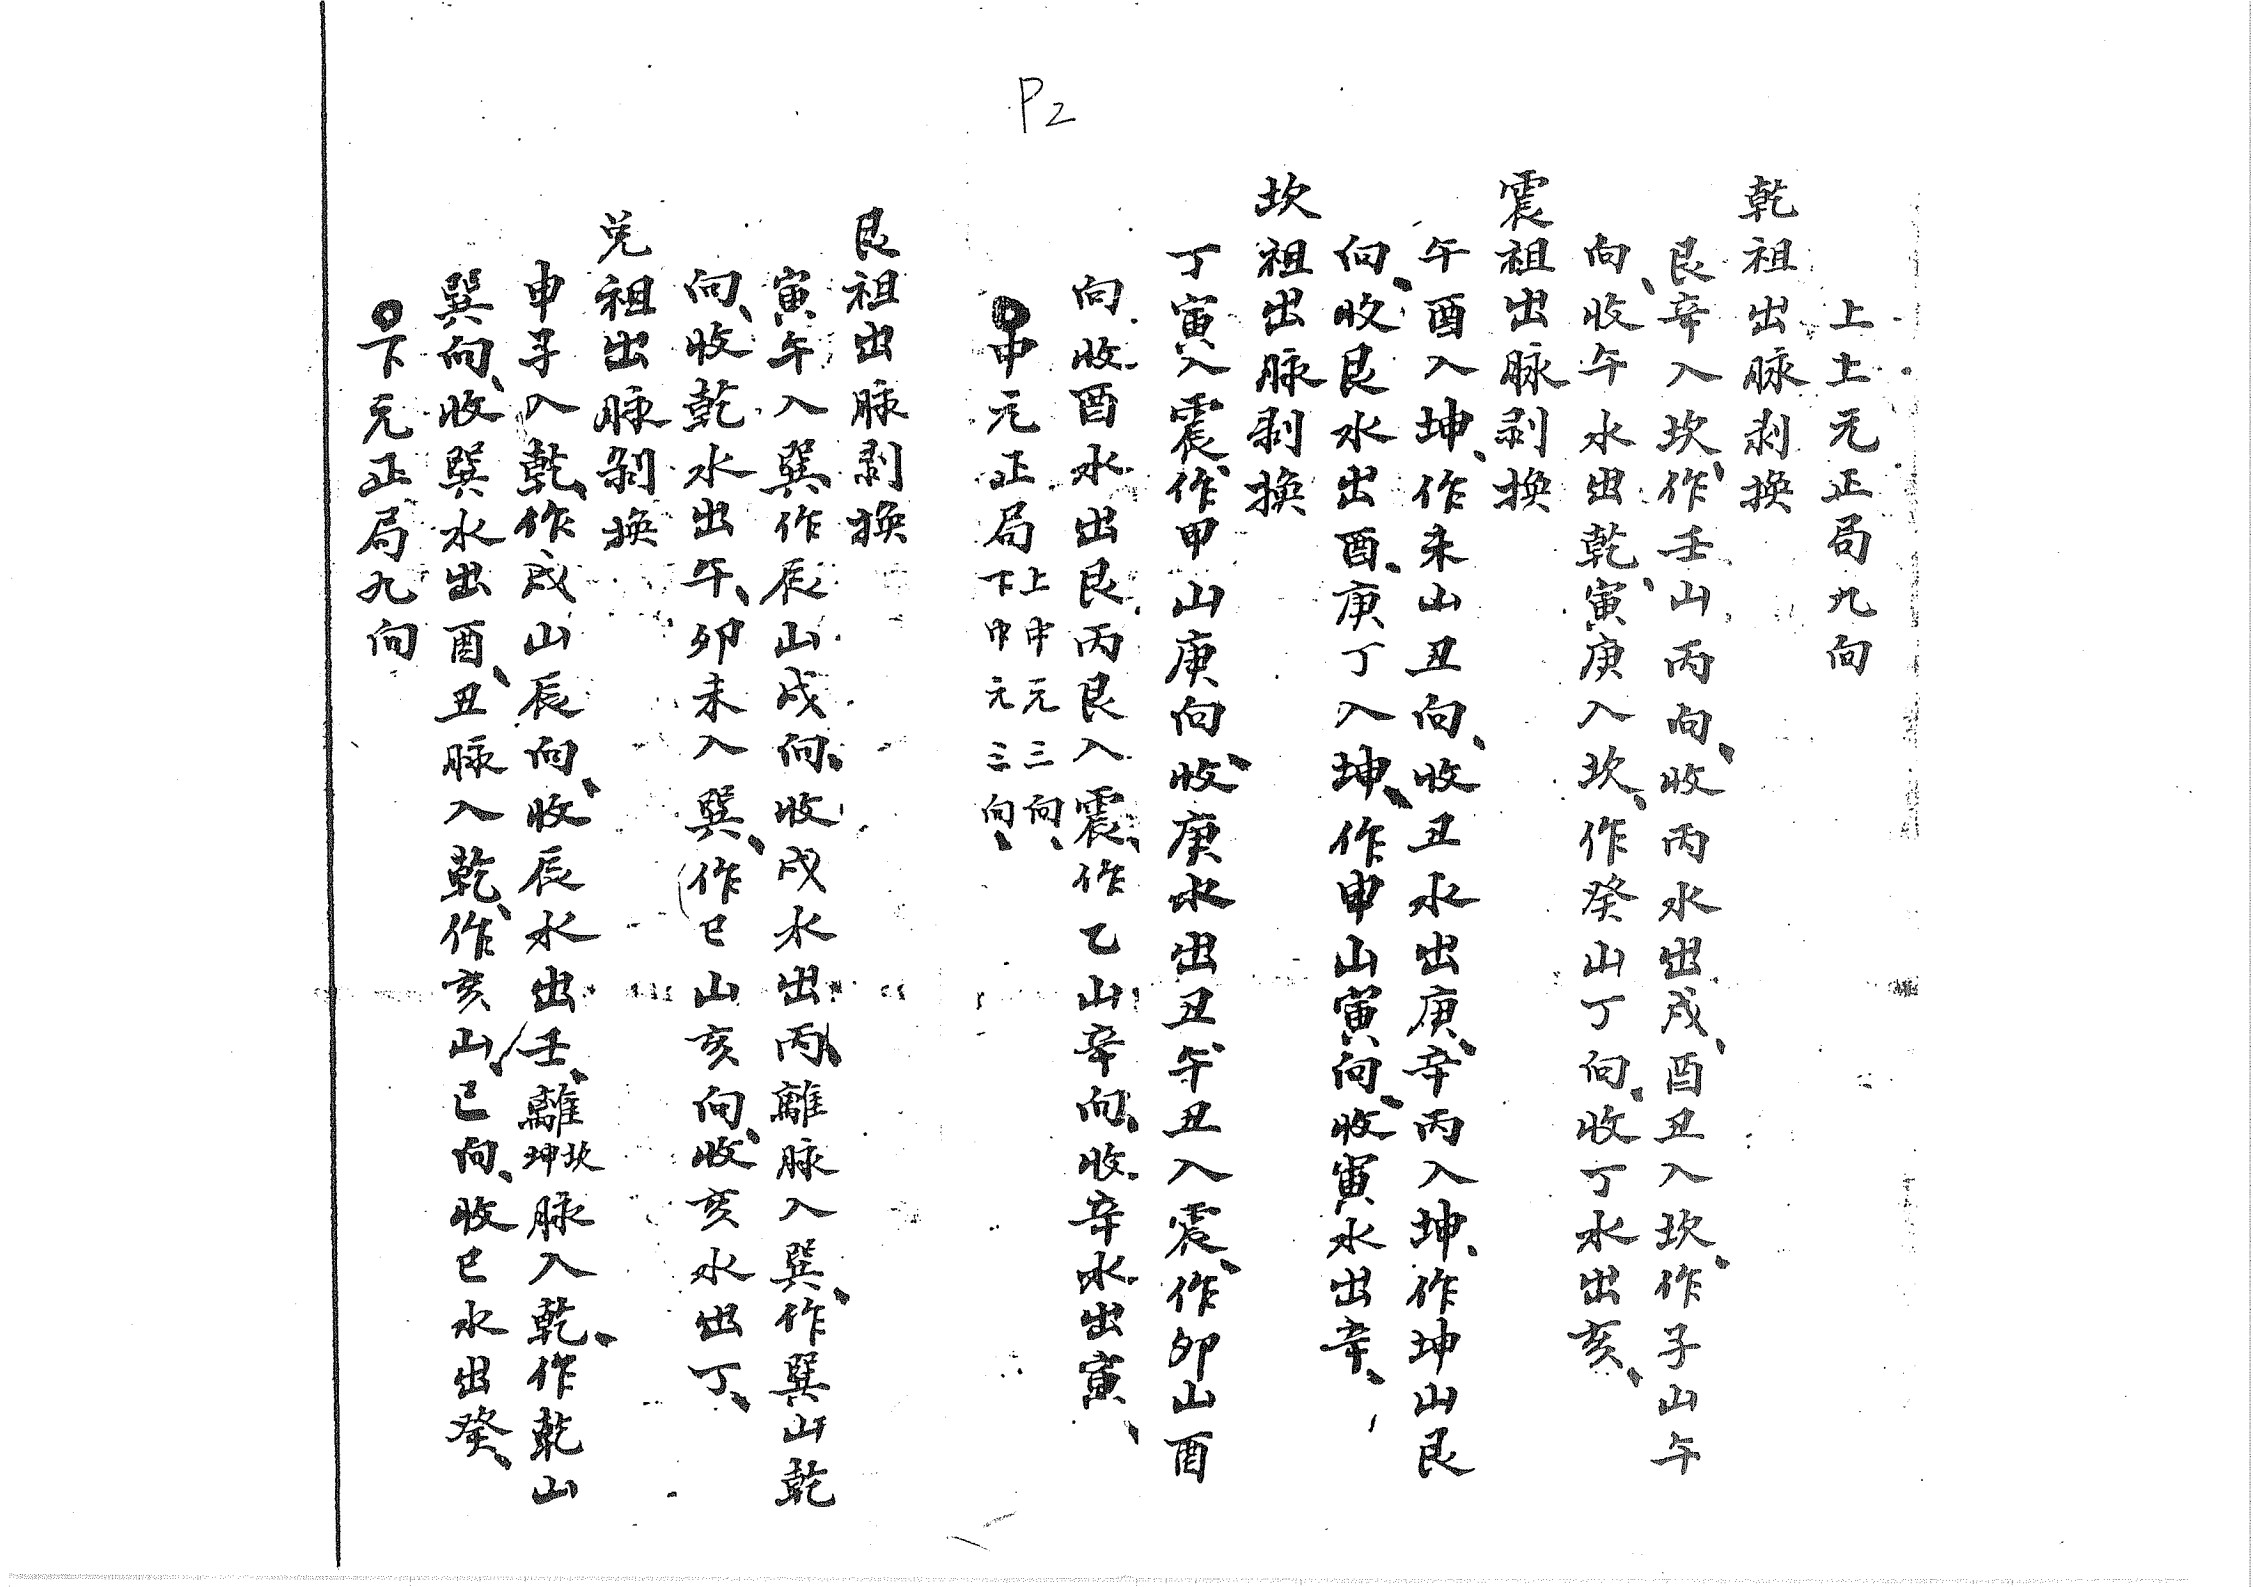 P2
上上元正局九向
乾祖出脉剥换
艮辛入坎、作壬山丙向、收丙水出戌、酉丑入坎、作子山午
向、收午水出乾、寅庚入坎、作癸山丁向、收丁水出亥、
震祖出脉剥换
午酉入坤、作未山丑向、收丑水出庚、辛丙入坤、作坤山艮
向、收艮水出酉、庚丁入坤、作申山寅向、收寅水出辛、
坎祖出脉剥换
丁寅入震、作甲山庚向、收庚水出丑、午丑入震、作卯山酉
向收酉水出艮、丙艮入震、作乙山辛向、收辛水出寅、
中元正局上中元三向、下中元三向、
艮祖出脉剥换
寅午入巽作辰山戌向、收戌水出丙、離脉入巽、作巽山乾
向、收乾水出午、卯未入巽、作巳山亥向、收亥水出丁、
兑祖出脉剥换
申子入乾、作戌山辰向、收辰水出壬、離坎坤脉入乾、作乾山
巽向、收巽水出酉、丑脉入乾、作亥山、巳向、收巳水出癸、
下元正局九向